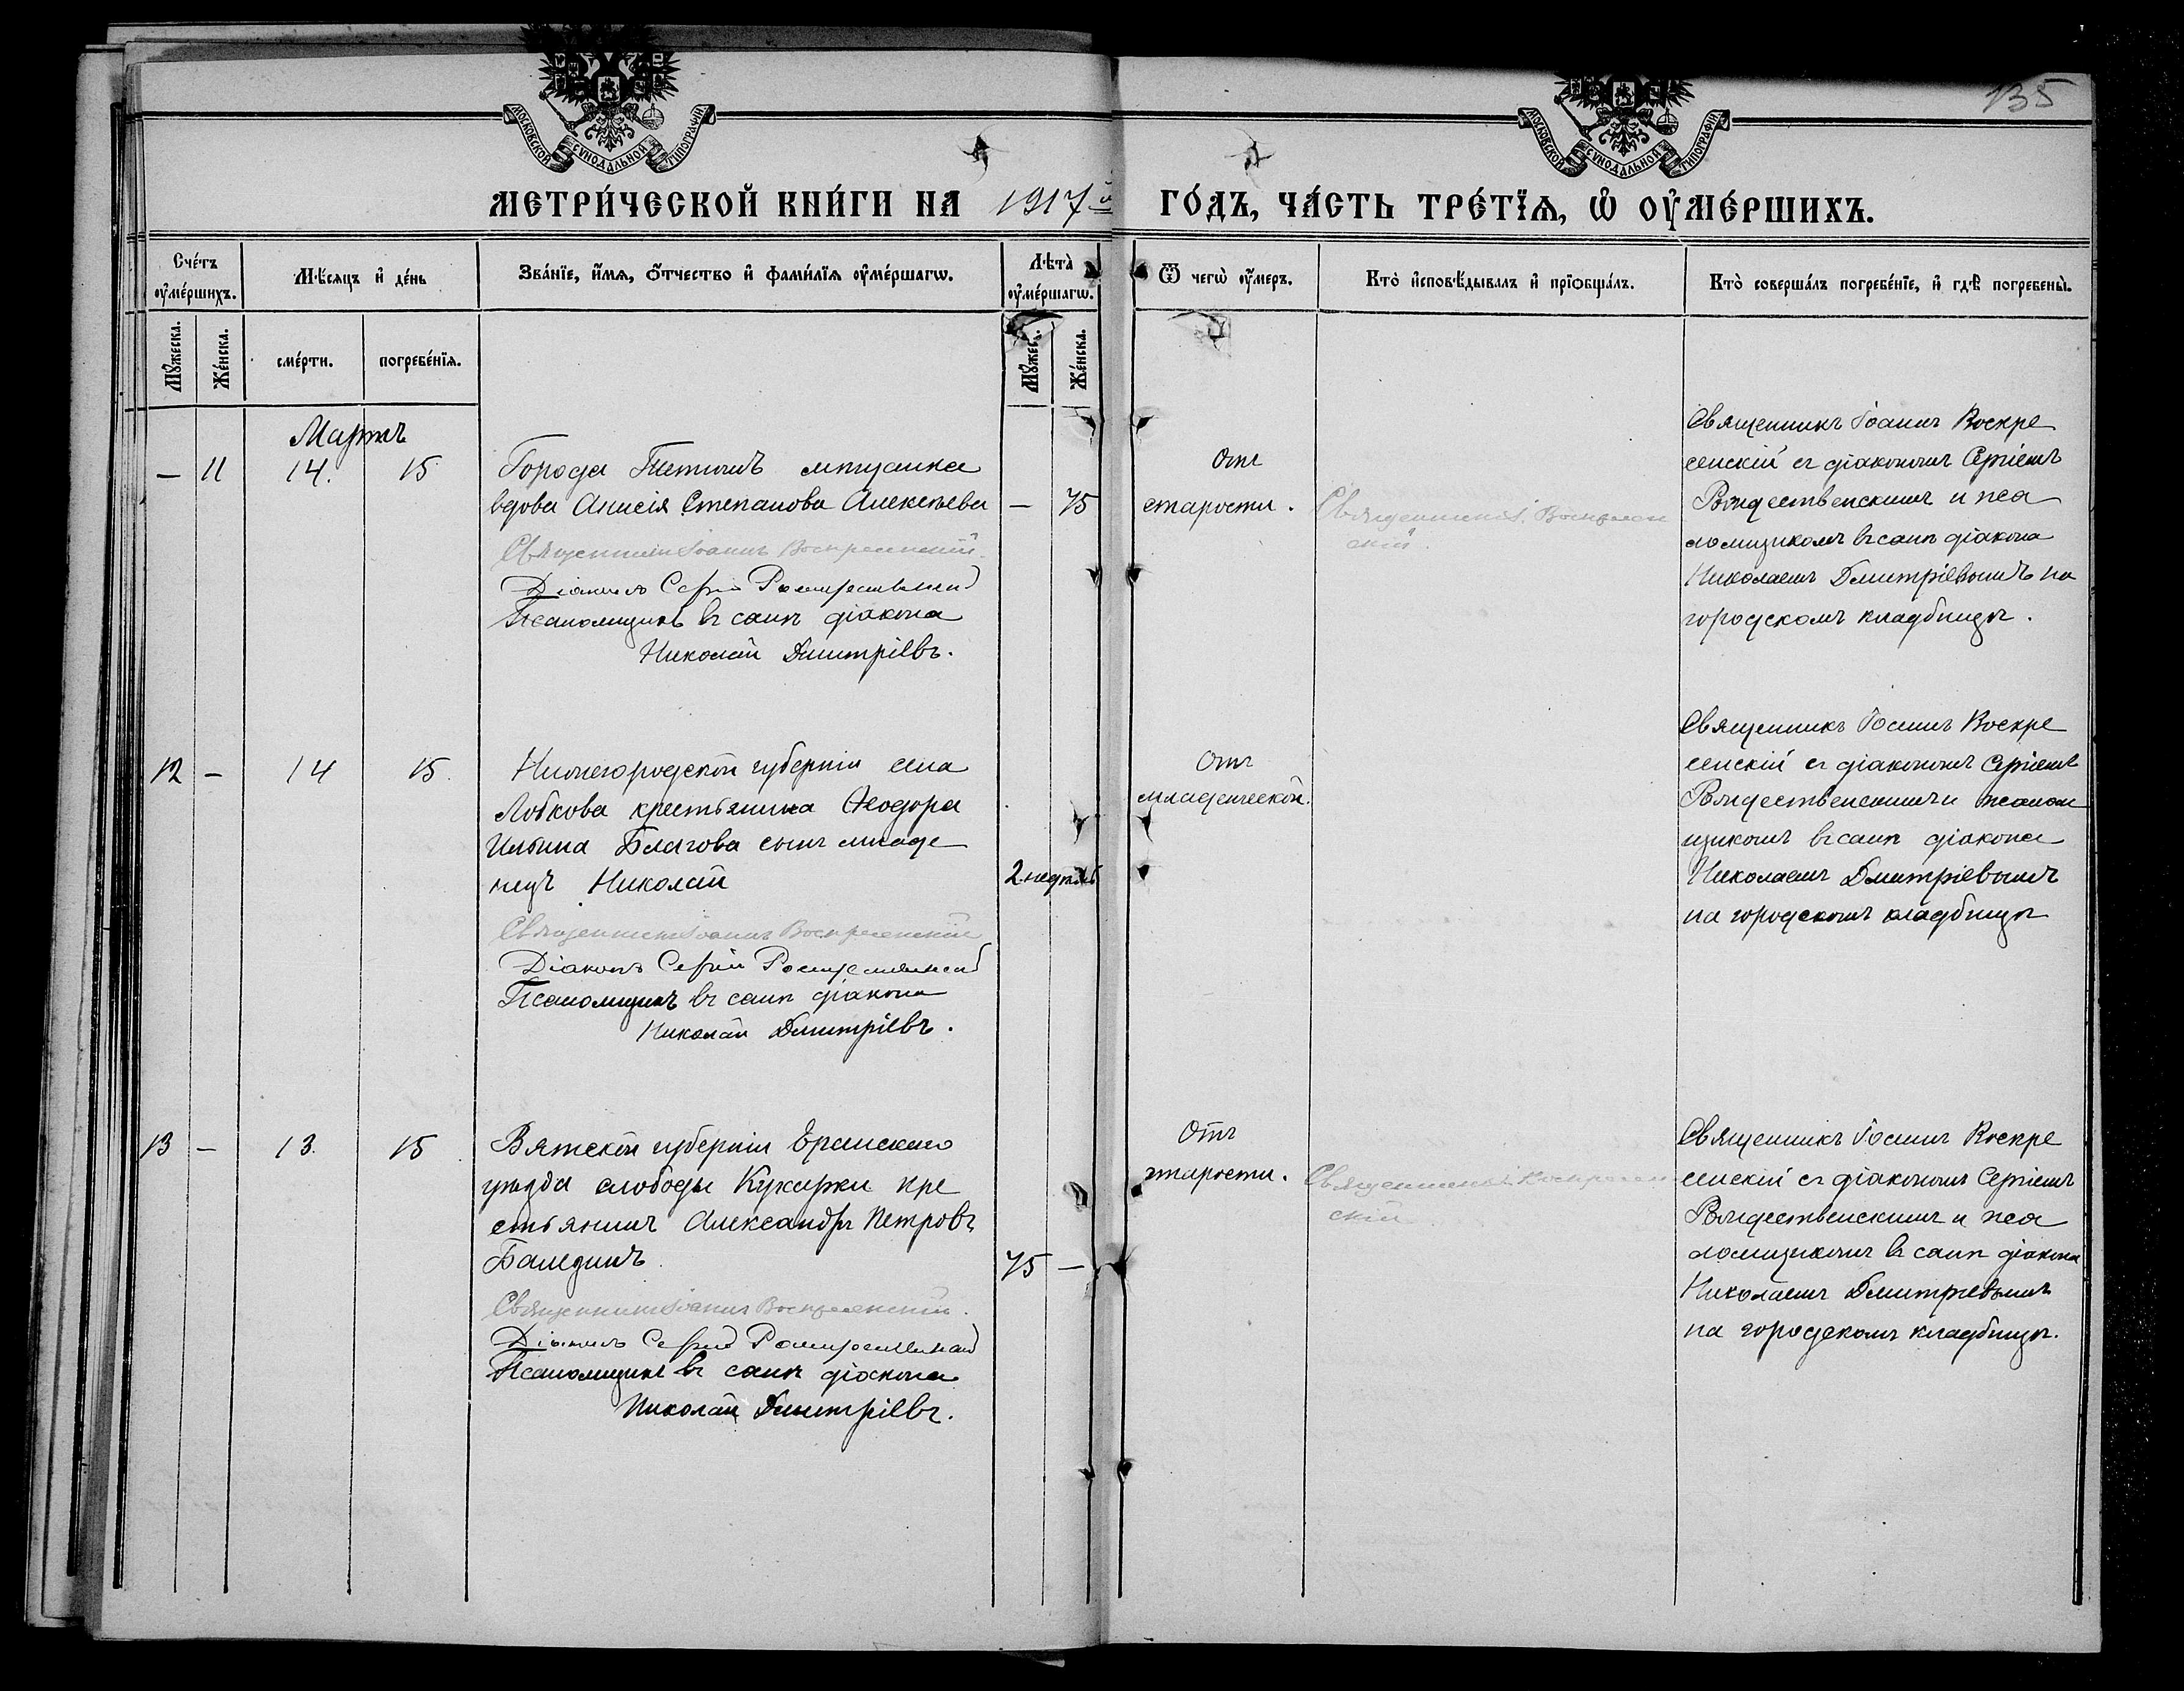 135
МОСКОВСКОЙ СѴНОДАЛЬНОЙ ТИПОГРАФІИ
МОСКОВСКОЙ СѴНОДАЛЬНОЙ ТИПОГРАФІИ
МЕТРИ́ЧЕСКОЙ КНИ́ГИ НА 1917й ГО́ДЪ, ЧА́СТЬ ТРЕ́ТЇѦ, Ѡ҆ ОУ҆МЕ́РШИХЪ.
Сче́тъ оу҆ме́ршихъ.
Мѣ́сѧцъ и҆ де́нь
Зва́нїе, и҆́мѧ, ѻ҆́тчество и҆ фами́лїѧ оу҆ме́ршагѡ.
Лѣта̀ оу҆ме́ршагѡ.
Ѿ чегѡ̀ оу҆́меръ.
Кто̀ и҆сповѣ́дывалъ и҆ прїѻбща́лъ.
Кто̀ соверша́лъ погребе́нїе, и҆ гдѣ̀ погребены̀.
Мꙋ́жеска.
Же́нска.
сме́рти.
погребе́нїѧ.
Мꙋ́жес.
Же́нска.
Мартъ
— 11 14. 15
Города Тетюшъ мѣщанка
вдова Анисія Степанова Алексѣева — 75
Священникъ Іоаннъ Воскресенскій.
Діаконъ Сергій Рождественскій
Псаломщикъ въ санѣ діакона
Николай Дмитріевъ.
Отъ
старости.
Священникъ І. Воскресен
скій.
Священникъ Іоаннъ Воскре
сенскій съ діакономъ Сергіемъ
Рождественскимъ и пса
ломщикомъ въ санѣ діакона
Николаемъ Дмитріевымъ на
городскомъ кладбищѣ.
12 — 14 15.
Нижегородской губерніи села
Лобкова крестьянина Ѳеодора
Ильина Благова сынъ младе
нецъ Николай 2 недѣль
Священникъ Іоаннъ Воскресенскій
Діаконъ Сергій Рождественскій
Псаломщикъ въ санѣ діакона
Николай Дмитріевъ.
Отъ
младенческой.
Священникъ Іоаннъ Воскре
сенскій съ діакономъ Сергіемъ
Рождественскимъ и псалом
щикомъ въ санѣ діакона
Николаемъ Дмитріевымъ
на городскомъ кладбищѣ
13 — 13. 15
Вятской губерніи Яранскаго
уѣзда слободы Кукарки кре
стьянинъ Александръ Петровъ
75 —
Священникъ Іоаннъ Воскресенскій.
Діаконъ Сергій Рождественскій
Псаломщикъ въ санѣ діакона
Николай Дмитріевъ.
Отъ
старости.
Священникъ І. Воскресен
скій
Священникъ Іоаннъ Воскре
сенскій съ діакономъ Сергіемъ
Рождественскимъ и пса
ломщикомъ въ санѣ діакона
Николаемъ Дмитріевымъ
на городскомъ кладбищѣ.